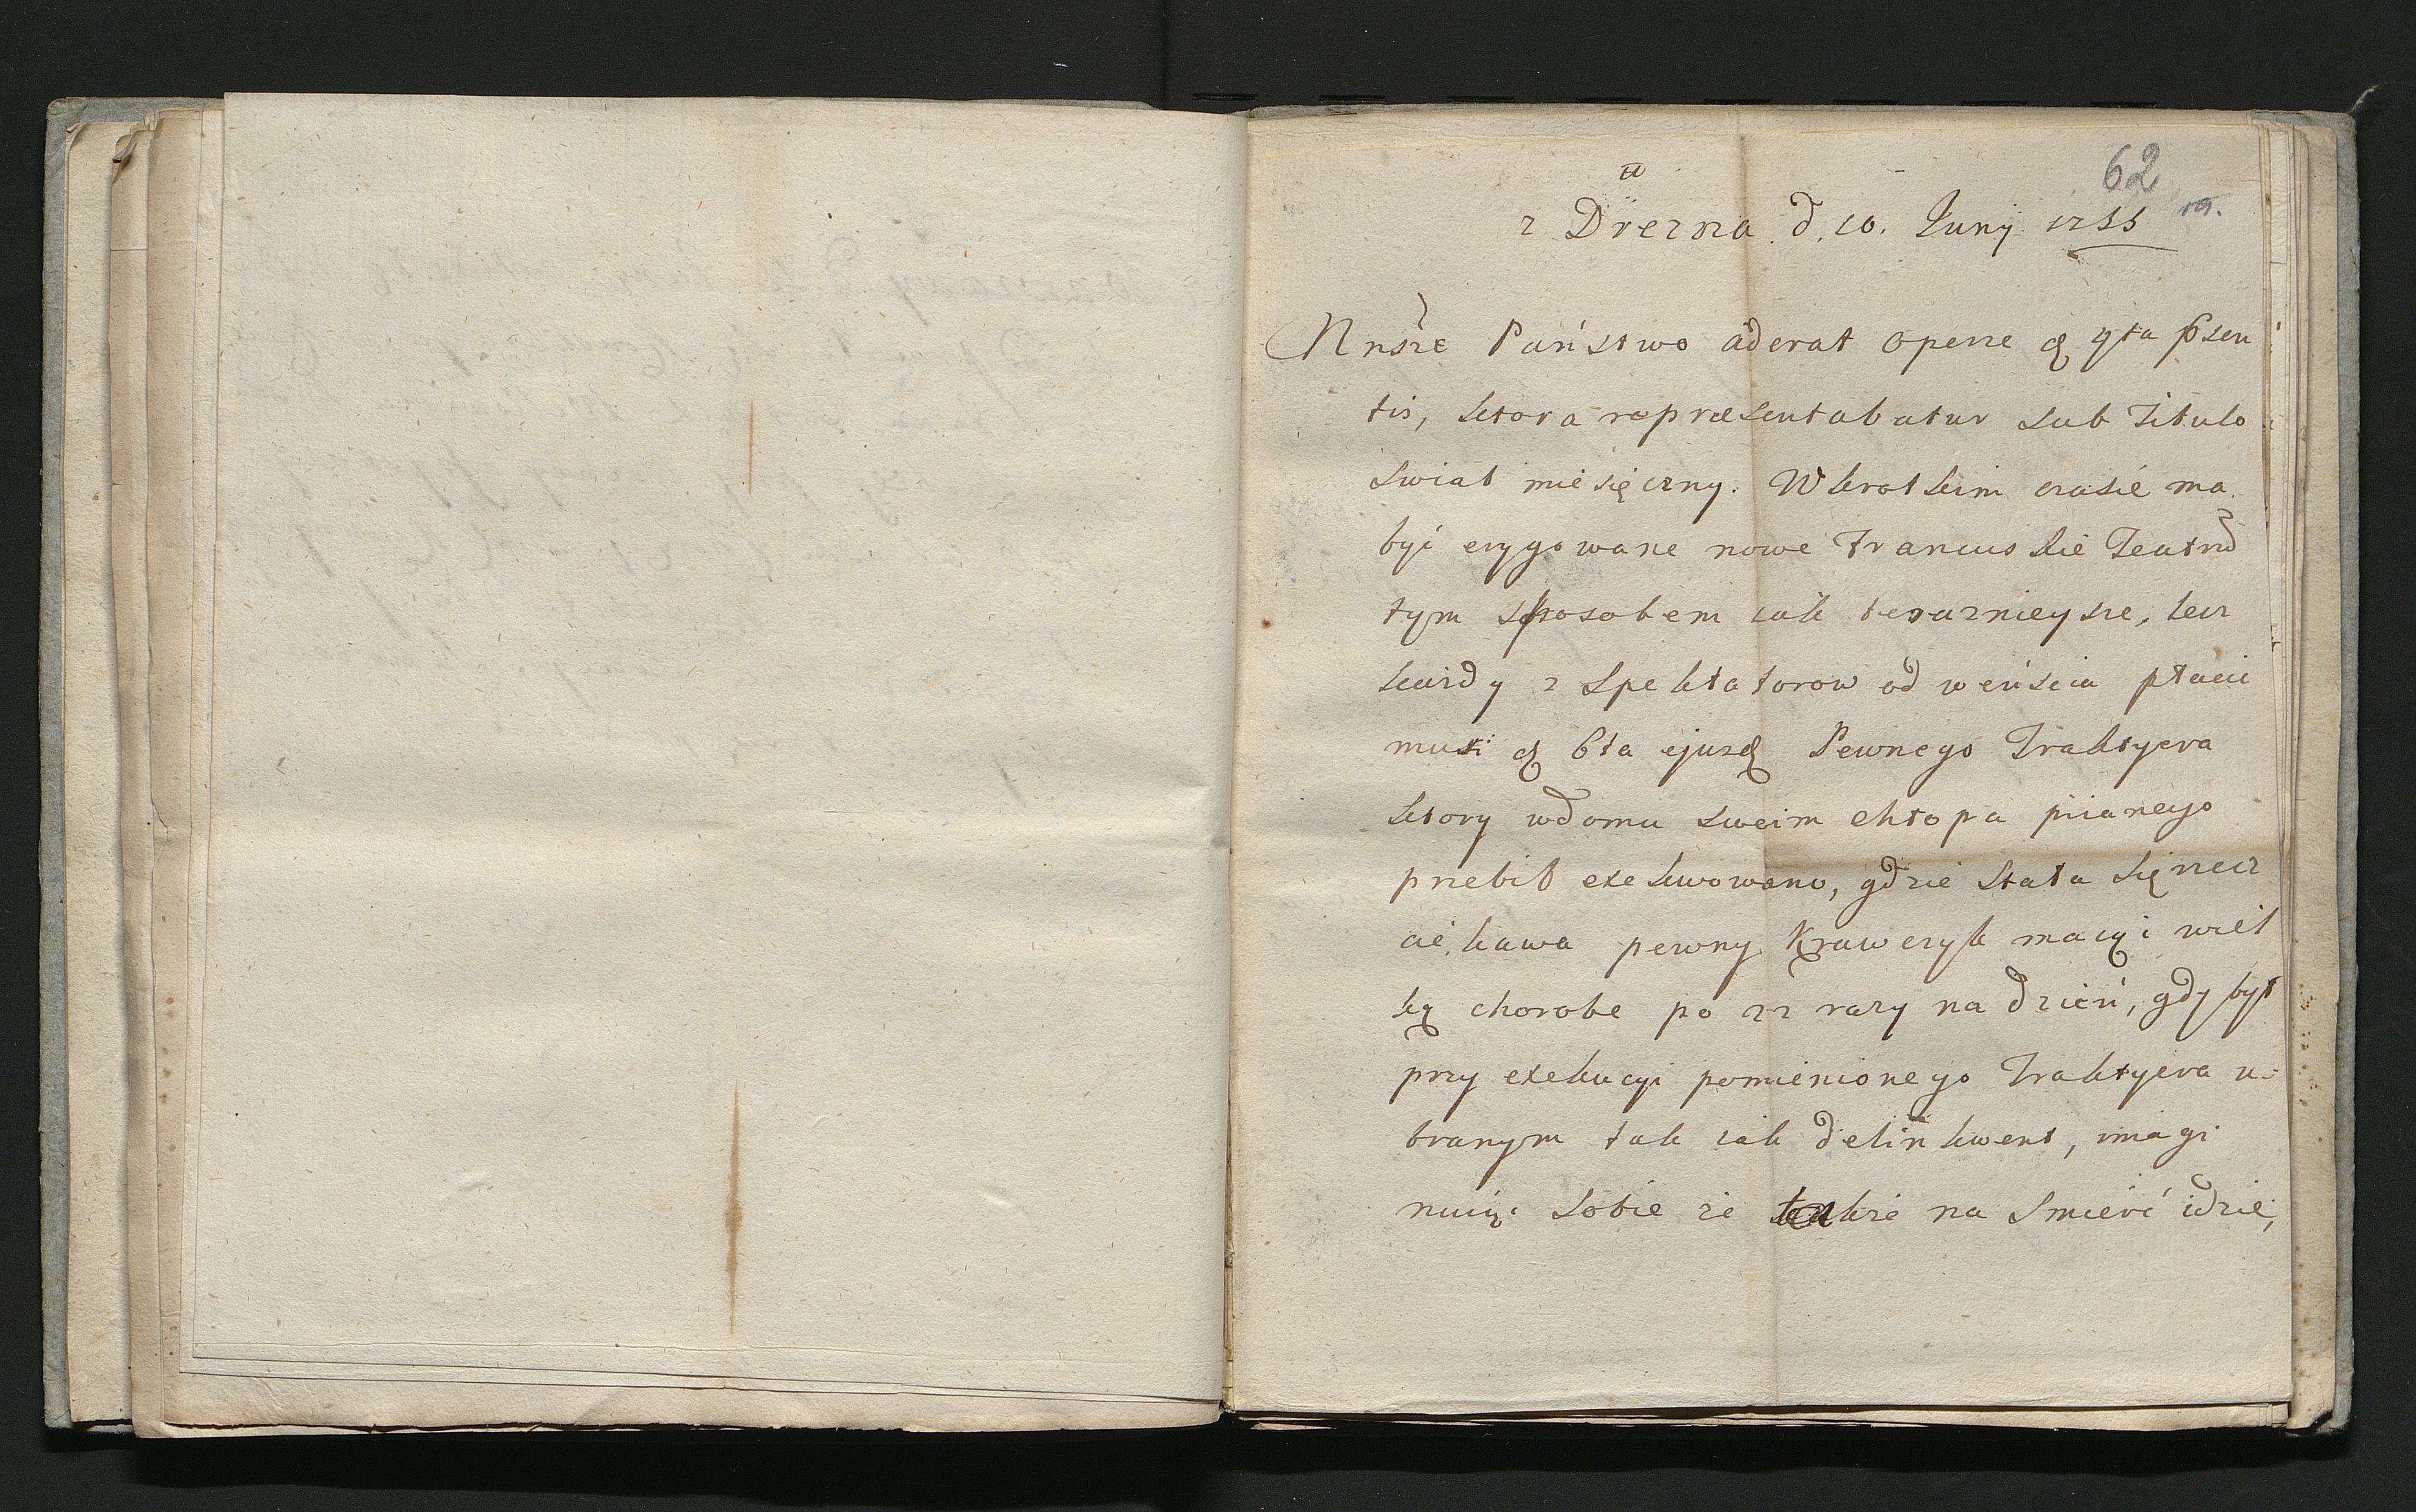 62
19.
z Drezna d. 10. Junij 1755
Nnsze Państwo aderat Operze d 9ta p̃sen
tis, ktora repræsentabatur sub Titulo
swiat miesięczny. W krotkim czasie ma
być erygowane nowe Francuskie Teatrũ
tym sposobem iak teraznieysze, lecz
kazdy z Spektatorow od weyścia płacić
musi d 6ta ejusd Pewnego Traktyera
ktory w domu swoim chłopa piianego
przebił exekwowano, gdzie stała się rzecz
ciekawa pewny Krawczyk maiąc wiel
ką chorobe po 22 razy na dzień, gdy był
przy exekucyi pomienionego Traktyera u-
branym tak iak delinkwent, imagi
nuiąc sobie ze także na smierć idzie,